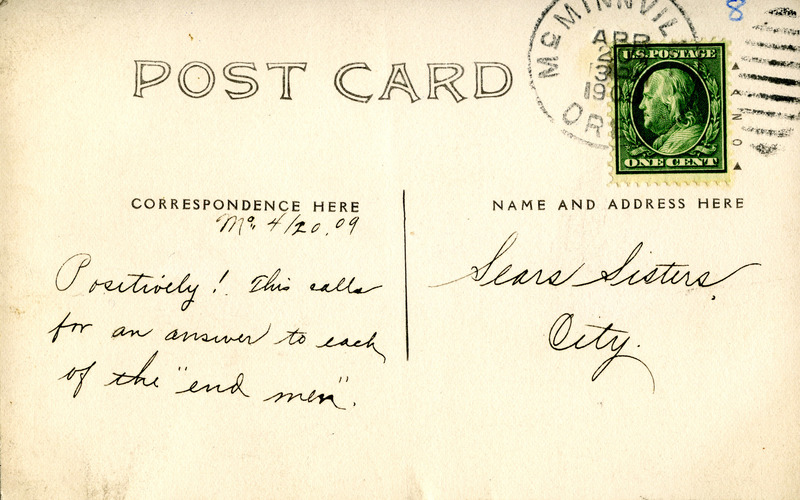 8
McMINNVIL
APR
2
19
OR
U.S. POSTAGE
ONE CENT
POST CARD
CORRESPONDENCE HERE
Mc. 4/20, 09
Positively! This calls
for an answer to each
of the "end men".
NAME AND ADDRESS HERE
Sears Sisters,
City.